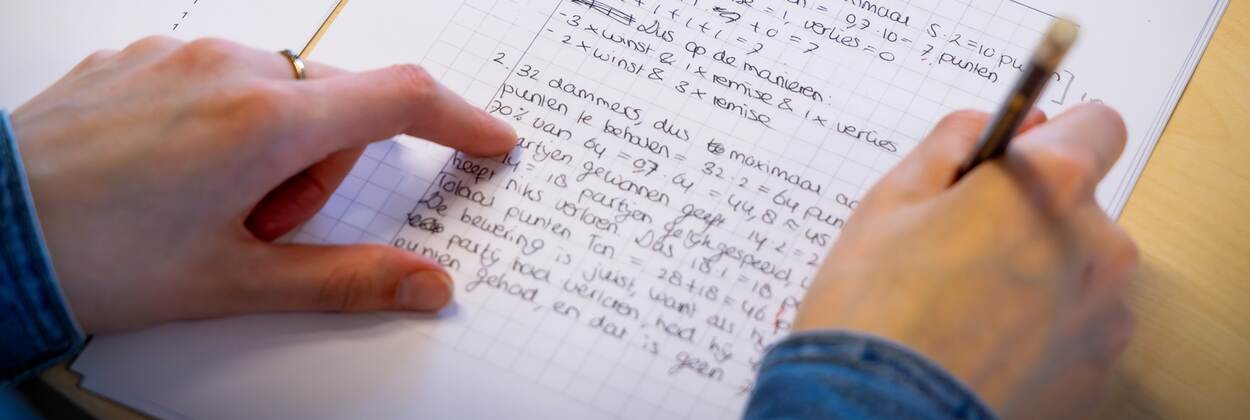 maximaal 5·2=10 punten]
= 0,7·10= 7 punten
1, verlies=0
1 + 1 + 1 + 0 = 7
Dus op de manieren:
-3 x winst & 1x remise & 1x verlies
-2 x winst & 3x remise
2. 32 dammers, dus maximaal
punten te behalen = 32·2 = 64 pun
70% van 64 = 0,7·64 = 44,8 ≈ 45
artijen gewonnen geeft 14·2 = 2
14 = 18 partijen gelijkgespeeld,
heeft niks verloren Dus 18·1 = 18 p
Totaal punten Ton = 28+18 = 46 p
De bewering is juist, want als h
party had verloren, had hij
punten gehad, en dat is geen